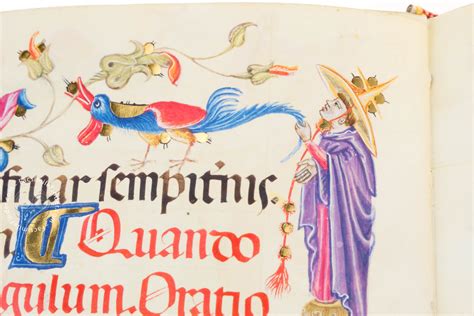 fruar sempitnis.
n Quando
gulum. Oratio